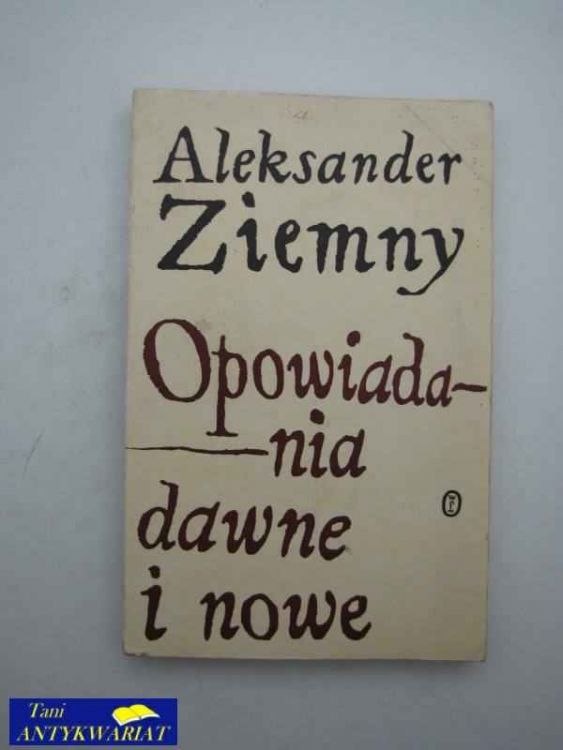 Aleksander
Ziemny
Opowiada-
-nia
dawne
i nowe
Tani
ANTYKWARIAT